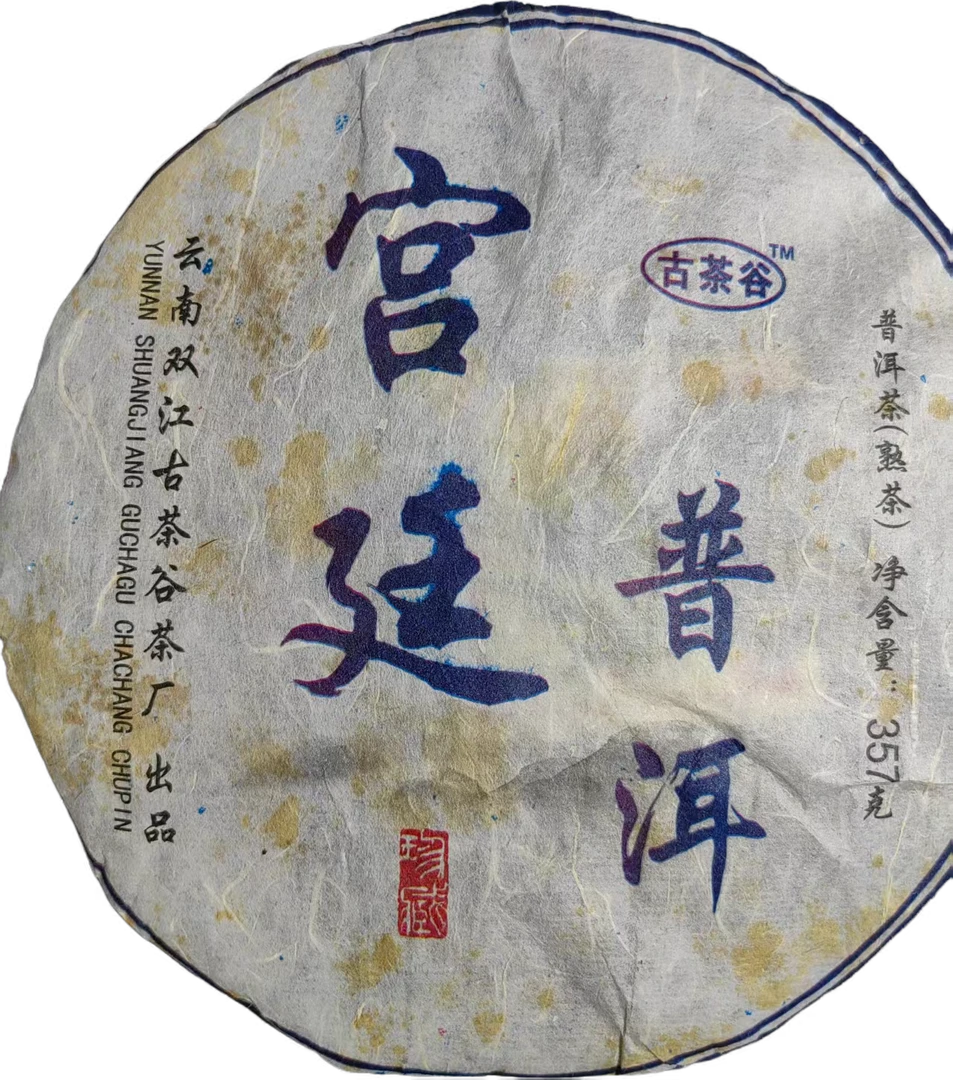 古茶谷™
普洱茶(熟茶) 净含量:357克
普洱
宫廷
珍藏
云南双江古茶谷茶厂出品
YUNNAN SHUANGJIANG GUCHAGU CHACHANG CHUPIN